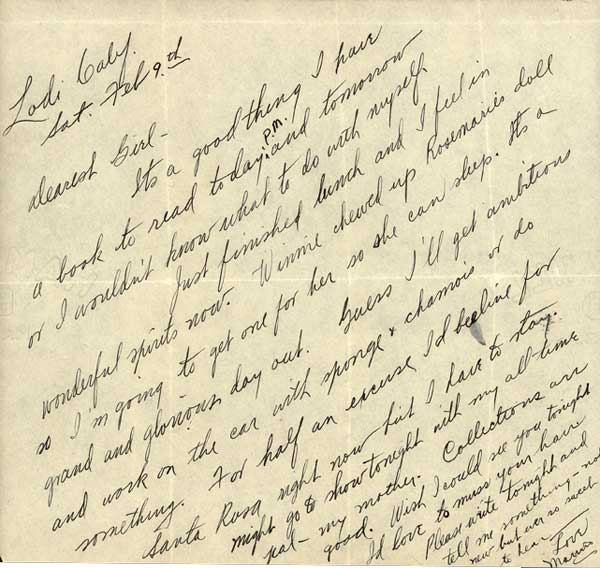 Lodi Caly.
Sat. Feb 9.th
Dearest Girl-
Its a good thing I have
a book to read today P.M. and tomorrow
or I wouldn't know what to do with myself.
Just finished lunch and I feel in
wonderful spirits now. Winnie chewed up Rosemaries doll
so I'm going to get one for her so she can sleep. It's a
grand and glorious day out. Guess I'll get ambitious
and work on the car with sponge & chamois or do
something. For half an excuse I'd beeline for
Santa Rosa right now but I have to stay.
might go to show tonight with my all-time
pal - my mother. Collections are
good. Wish I could see you tonight
I'd love to muss your hair
Please write tonight and
tell me something - not
new but ever so sweet
to hear
Love